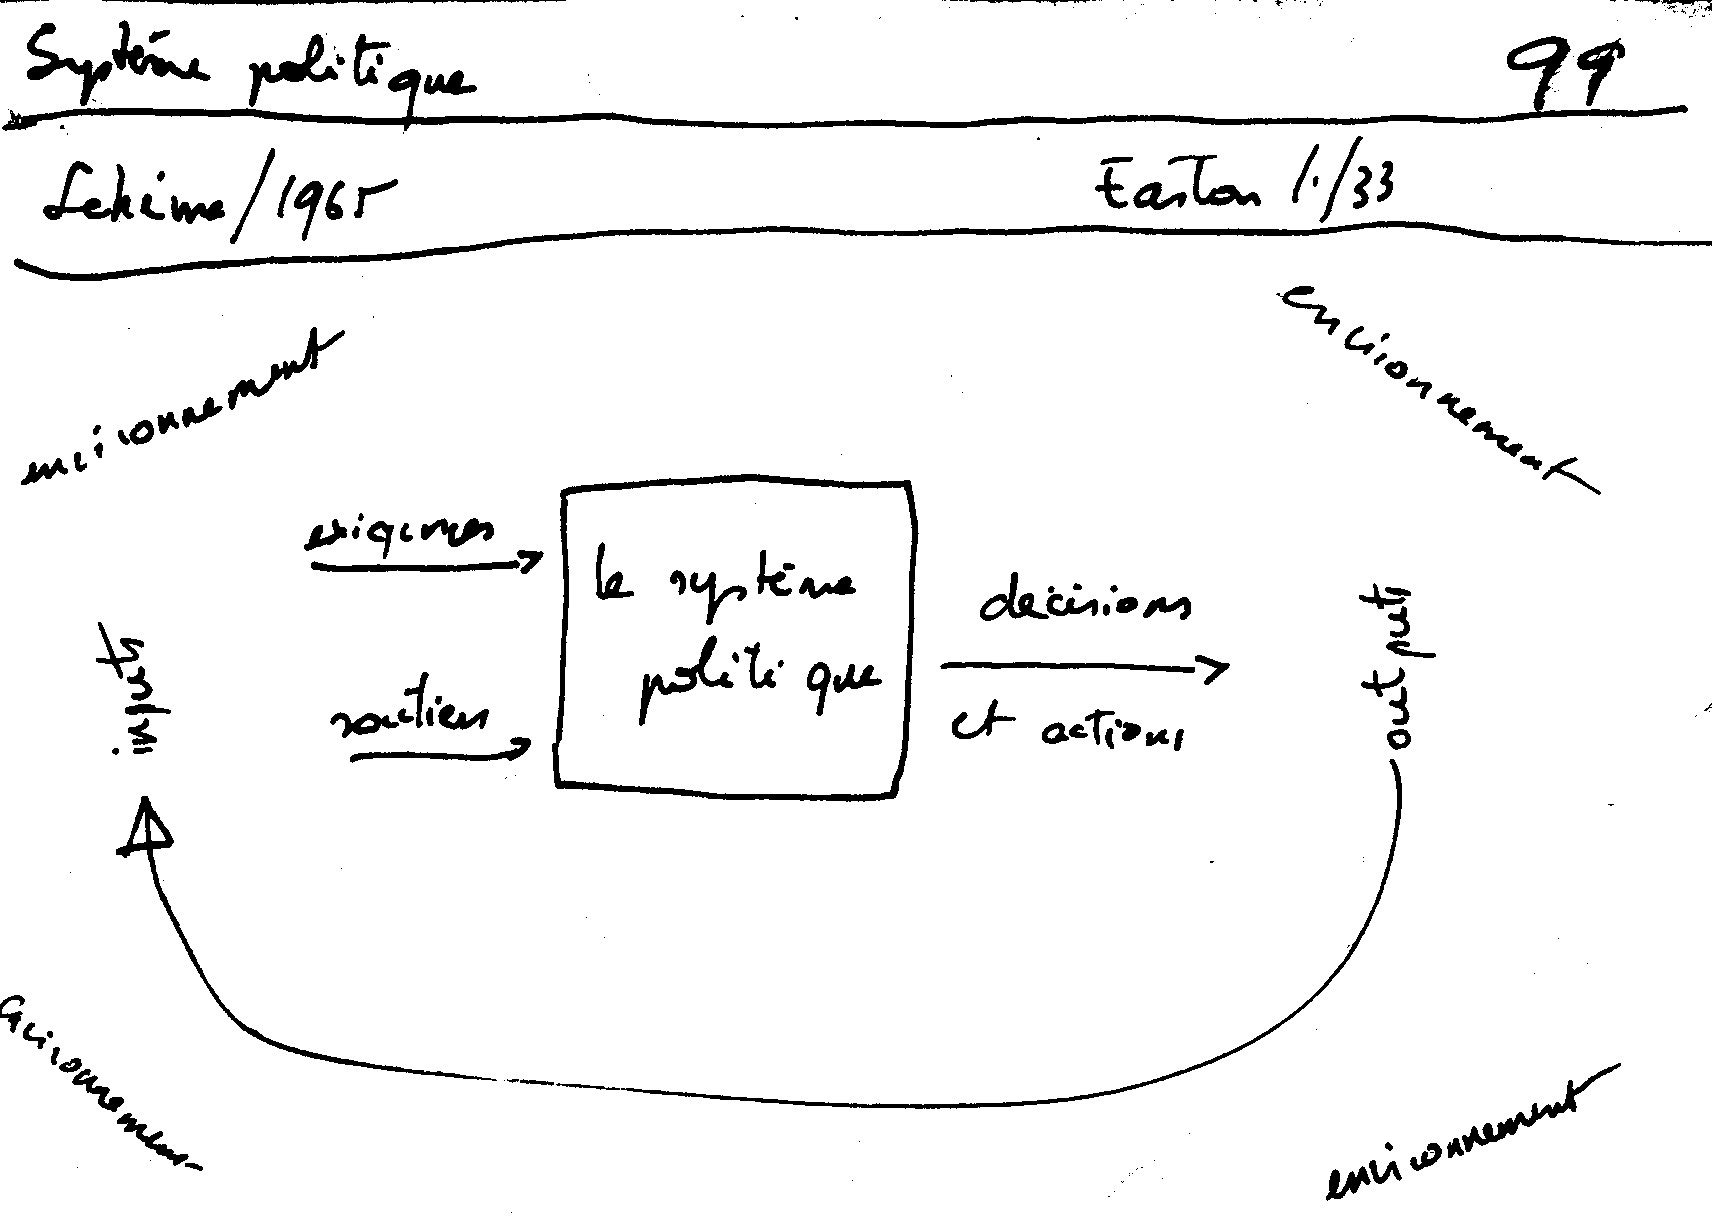 Système politique 99
Schéma/1965 Easton 1./33
environnement environnement
exigences
le système
décisions
politique
inputs
outputs
soutien
et actions
environnement
environnement